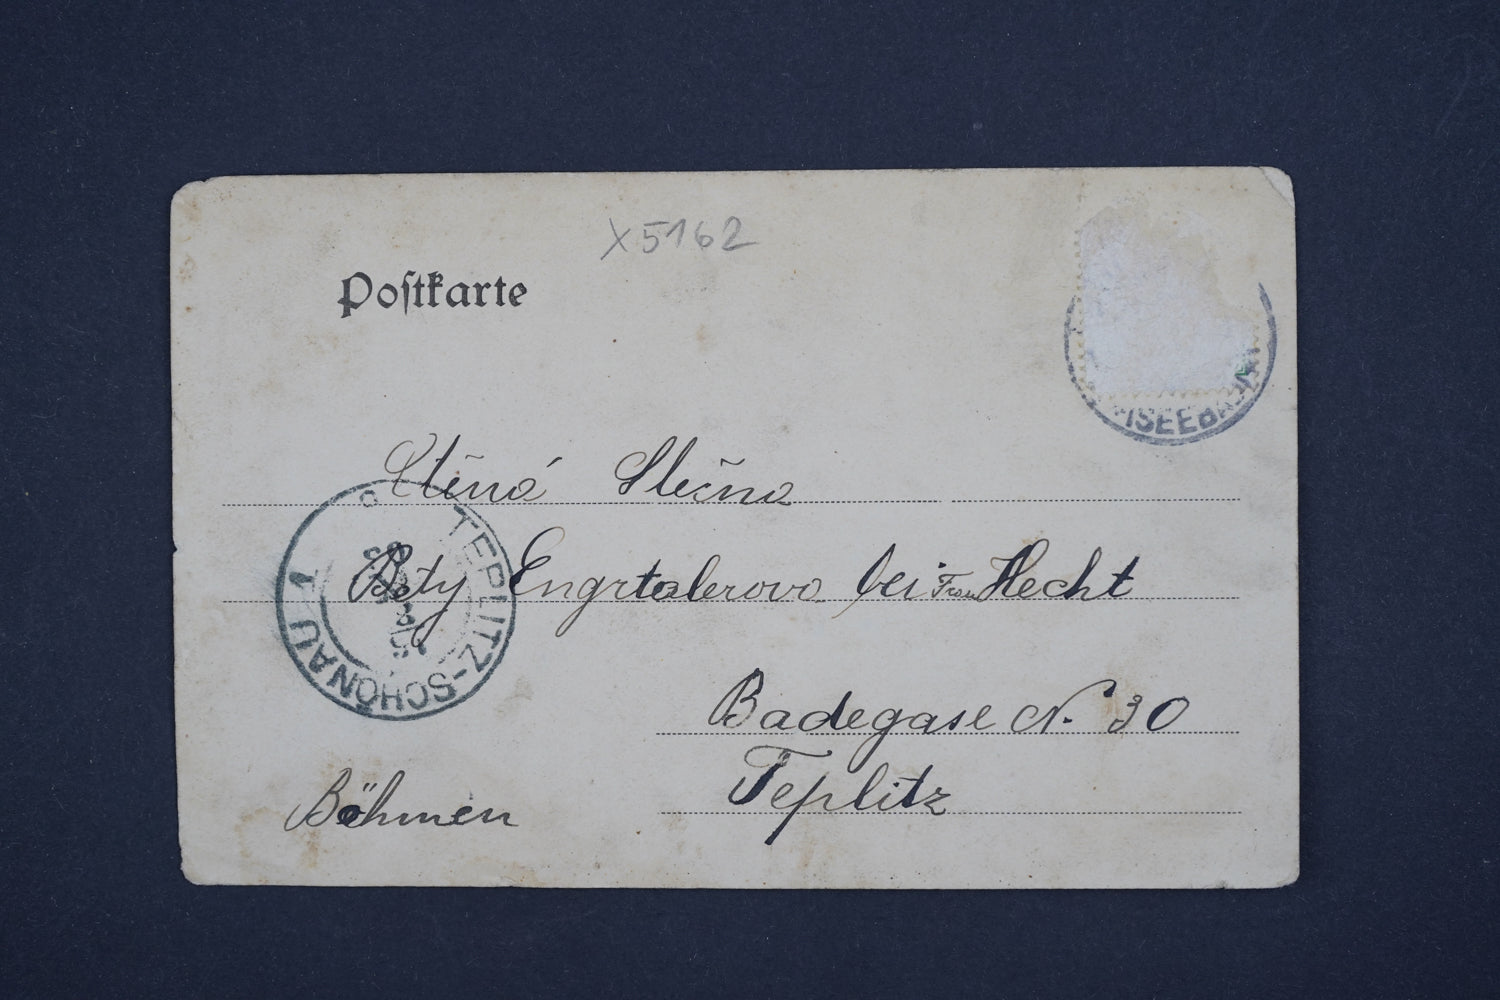 X5162
Postkarte
Ctěná Slečna
Bety Engrtalerova bei Frau Hecht
Badegase N. 30
Teplitz
Böhmen
TEPLITZ-SCHÖNAU 1